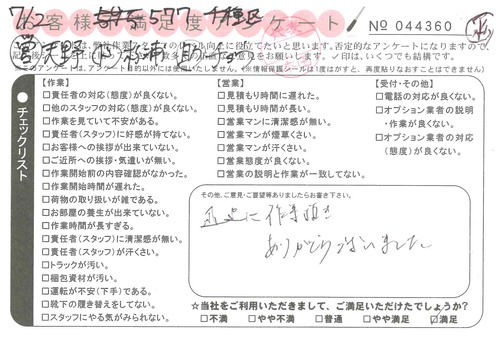 お客様満足度アンケート
No 044360
7/2
【作業】
□責任者の対応(態度)が良くない。
□他のスタッフの対応(態度)が良くない。
□作業を見ていて不安がある。
□責任者(スタッフ)に好感が持てない。
□お客様への挨拶が出来ていない。
□ご近所への挨拶・気遣いが無い。
□作業開始前の内容確認がなかった。
□作業開始時間が遅れた。
□荷物の取り扱いが雑である。
□お部屋の養生が出来ていない。
□作業時間が長すぎる。
□責任者(スタッフ)に清潔感が無い。
□責任者(スタッフ)が汗くさい。
□トラックが汚い。
□梱包資材が汚い。
□運転が不安(下手)である。
□靴下の履き替えをしてない。
□スタッフにやる気がみられない。
【営業】
□見積もり時間に遅れた。
□見積もり時間が長い。
□営業マンに清潔感が無い。
□営業マンが煙草くさい。
□営業マンが汗くさい。
□営業態度が良くない。
□営業の説明と作業が一致してない。
【受付・その他】
□電話の対応が良くない。
□オプション業者の説明
・作業が良くない。
□オプション業者の対応
(態度)が良くない。
チェックリスト
その他、ご意見・ご要望等ありましたらお書き下さい。
迅速に作業頂き
ありがとうございました
☆当社をご利用いただきまして、ご満足いただけたでしょうか?
□不満 □やや不満 □普通 □やや満足 ☑満足